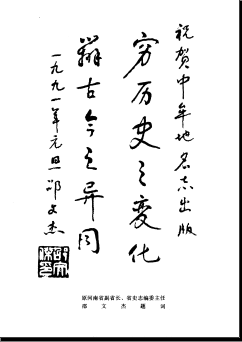 祝贺中牟地名志出版
穷历史之变化
辩古今之异同
一九九一年元旦 邵文杰
原河南省副省长、省史志编委主任
邵文杰题词